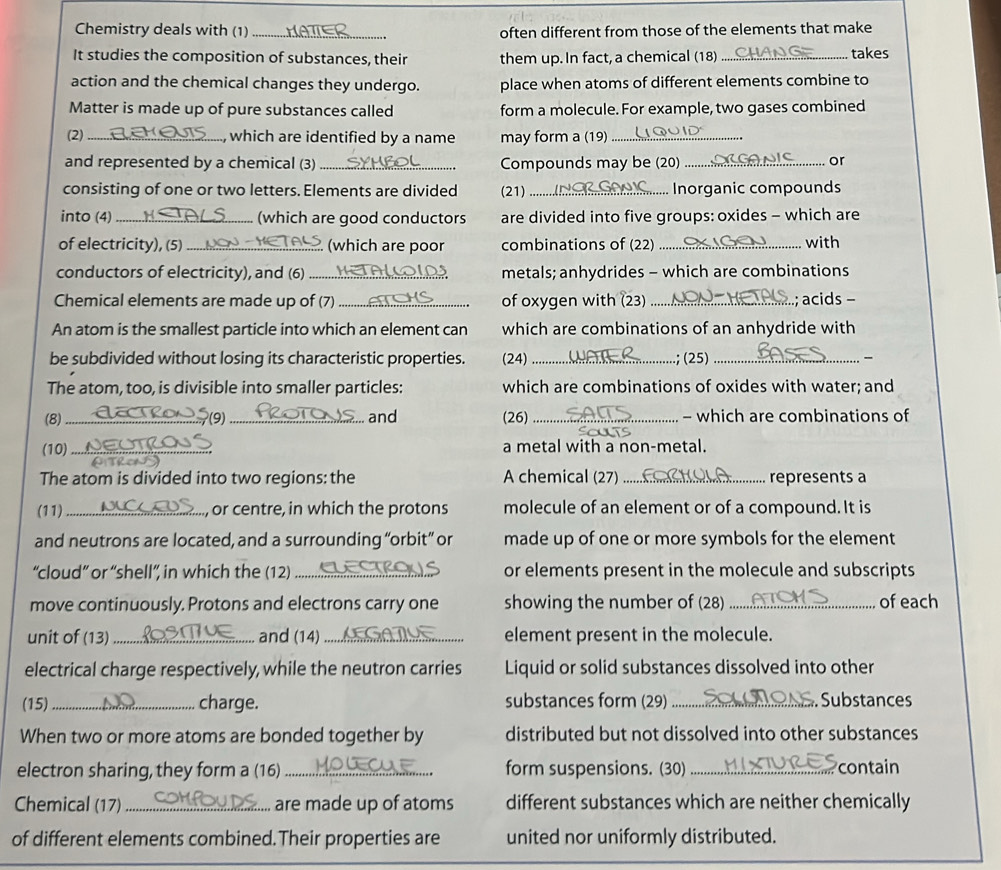 Chemistry deals with (1) MATTER.
It studies the composition of substances, their
action and the chemical changes they undergo.
Matter is made up of pure substances called
(2) ELEMENTS, which are identified by a name
and represented by a chemical (3) SYMBOL.
consisting of one or two letters. Elements are divided
into (4) METALS (which are good conductors
of electricity), (5) NON-METALS (which are poor
conductors of electricity), and (6) METALLOIDS.
Chemical elements are made up of (7) ATOMS.
An atom is the smallest particle into which an element can
be subdivided without losing its characteristic properties.
The atom, too, is divisible into smaller particles:
(8) ELECTRONS, (9) PROTONS and
(10) NEUTRONS.
The atom is divided into two regions: the
(11) NUCLEUS, or centre, in which the protons
and neutrons are located, and a surrounding "orbit" or
"cloud" or "shell", in which the (12) ELECTRONS
move continuously. Protons and electrons carry one
unit of (13) POSITIVE and (14) NEGATIVE
electrical charge respectively, while the neutron carries
(15) NO charge.
When two or more atoms are bonded together by
electron sharing, they form a (16) MOLECULE.
Chemical (17) COMPOUDS are made up of atoms
of different elements combined. Their properties are
often different from those of the elements that make
them up. In fact, a chemical (18) CHANGE takes
place when atoms of different elements combine to
form a molecule. For example, two gases combined
may form a (19) LIQUID.
Compounds may be (20) ORGANIC or
(21) INORGANIC. Inorganic compounds
are divided into five groups: oxides – which are
combinations of (22) OXIGEN with
metals; anhydrides – which are combinations
of oxygen with (23) NON-METALS; acids –
which are combinations of an anhydride with
(24) WATER; (25) BASES –
which are combinations of oxides with water; and
(26) SALTS – which are combinations of
a metal with a non-metal.
A chemical (27) FORMULA represents a
molecule of an element or of a compound. It is
made up of one or more symbols for the element
or elements present in the molecule and subscripts
showing the number of (28) ATOMS of each
element present in the molecule.
Liquid or solid substances dissolved into other
substances form (29) SOLUTIONS. Substances
distributed but not dissolved into other substances
form suspensions. (30) MIXTURES contain
different substances which are neither chemically
united nor uniformly distributed.